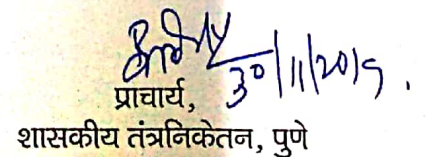 30/11/2019.
प्राचार्य,
शासकीय तंत्रनिकेतन, पुणे